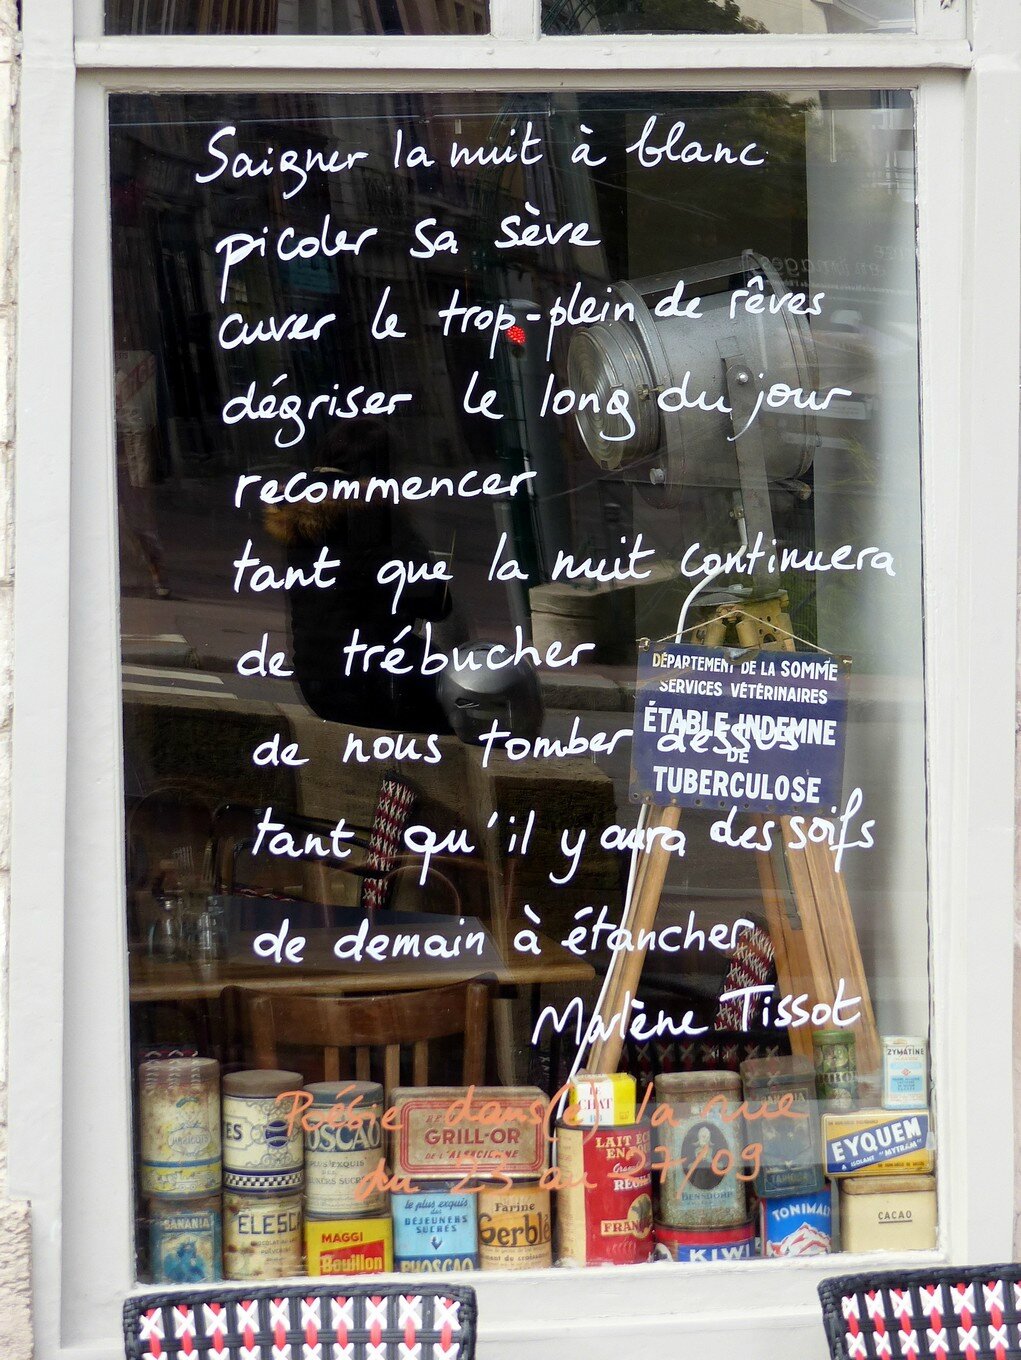 Saigner la nuit à blanc
picoler sa sève
cuver le trop-plein de rêves
dégriser le long du jour
recommencer
tant que la nuit continuera
de trébucher
de nous tomber dessus
tant qu'il y aura des soifs
de demain à étancher
Marlène Tissot
DÉPARTEMENT DE LA SOMME
SERVICES VÉTÉRINAIRES
ÉTABLE INDEMNE
DE
TUBERCULOSE
Poésie dans(e) la rue
du 23 au 27/09
ZYMATINE
LE
CHAT
OSCAO
PLUS EXQUIS
GRILL-OR
DE L'ALSACIENNE
LAIT EC
EN
BENSDORP
EYQUEM
ISOLANT "MYTRAM"
BANANIA
ELESCA
MAGGI
Bouillon
le plus exquis
des
DÉJEUNERS
SUCRÉS
PHOSCAO
Farine
Gerblé
FRAN
KIWI
TONIMAL
CACAO